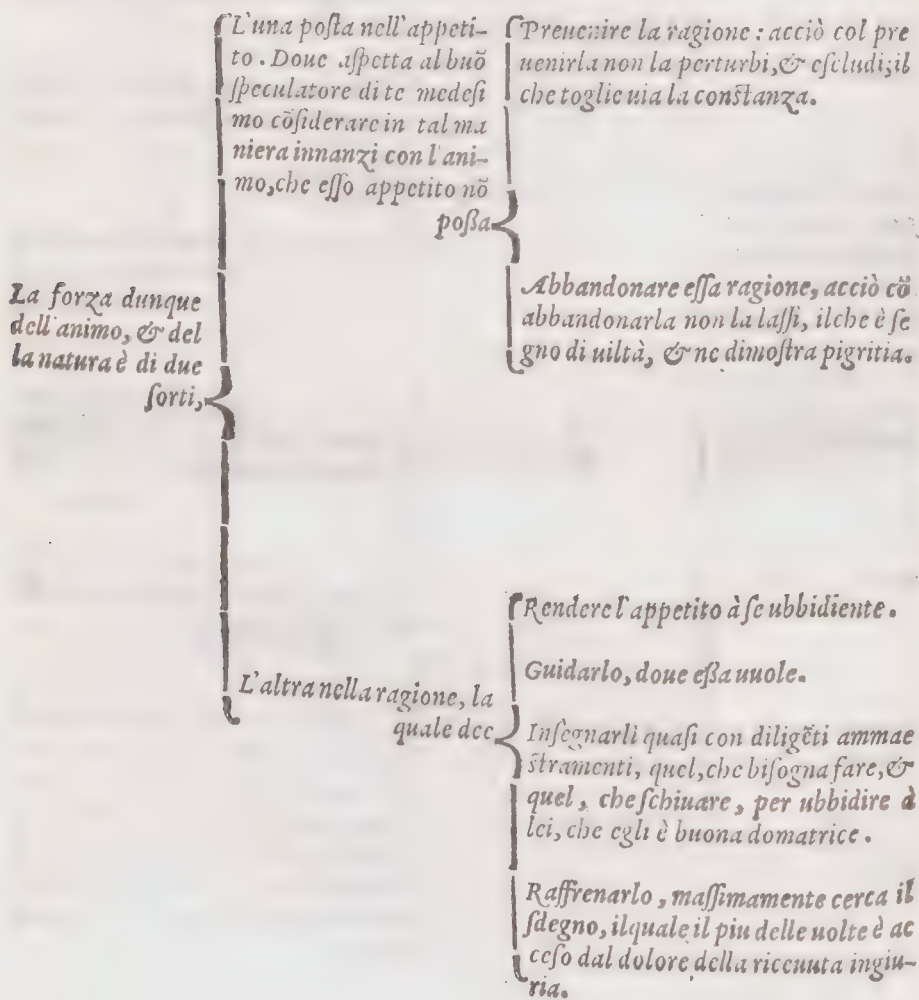 La forza dunque
dell'animo, & del
la natura è di due
ſorti,
L'una poſta nell'appeti-
to. Doue aſpetta al buõ
ſpeculatore di te medeſi
mo cõſiderare in tal ma
niera innanzi con l'ani-
mo, che eſſo appetito nõ
poßa
Preuenire la ragione: acciò col pre
uenirla non la perturbi, & eſcludi; il
che toglie uia la conſtanza.
Abbandonare eſſa ragione, acciò cõ
abbandonarla non la laſſi, ilche è ſe
gno di uiltà, & ne dimoſtra pigritia.
L'altra nella ragione, la
quale dee
Rendere l'appetito à ſe ubbidiente.
Guidarlo, doue eßa uuole.
Inſegnarli quaſi con diligẽti ammae
ſtramenti, quel, che biſogna fare, &
quel, che ſchiuare, per ubbidire à
lei, che egli è buona domatrice.
Raffrenarlo, maſſimamente cerca il
ſdegno, ilquale il piu delle uolte è ac
ceſo dal dolore della riceuuta ingiu-
ria.